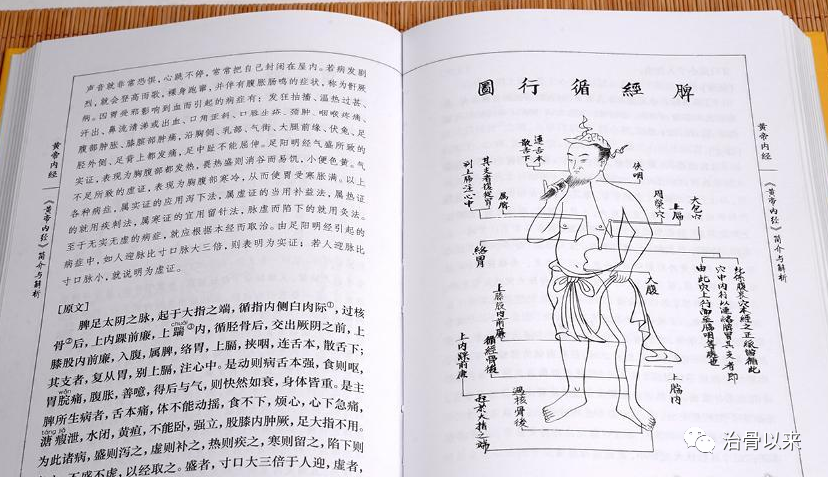 声音就非常恐惧，心跳不停，常常把自己封闭在屋内。若病发剧
烈，就会登高而歌，裸身跑窜，并伴有腹胀肠鸣的症状，称为骭厥
病。因胃受邪影响到血而引起的病症有：发狂抽搐、温热过甚、
汗出、鼻流清涕或出血、口角歪斜、口唇生疮、颈肿、咽喉疼痛、
腹部肿胀、膝膑部肿痛，沿胸侧、乳部、气街、大腿前缘、伏兔、足
胫外侧、足背上都发痛，足中趾不能屈伸。足阳明经气盛所致的
实证，表现为胸腹部都发热，畏热盛则消谷而易饥，小便色黄。气
不足所致的虚证，表现为胸腹部寒冷，从而使胃受寒胀满。以上
各种病症，属实证的应用泻下法，属虚证的当用补益法，属热证
的就用疾刺法，属寒证的宜用留针法，脉虚而陷下的就用灸法。
至于无实无虚的病症，就应根据本经而取治。由足阳明经引起的
病症中，如人迎脉比寸口脉大三倍，则表明为实证；若人迎脉比
寸口脉小，就说明为虚证。
[原文]
脾足太阴之脉，起于大指之端，循指内侧白肉际①，过核
骨②后，上内踝前廉，上踹③内，循胫骨后，交出厥阴之前，上
chuǎi
膝股内前廉，入腹，属脾，络胃，上膈，挟咽，连舌本，散舌下；
其支者，复从胃，别上膈，注心中。是动则病舌本强，食则呕，
胃脘痛，腹胀，善噫，得后与气，则快然如衰，身体皆重。是主
脾所生病者，舌本痛，体不能动摇，食不下，烦心，心下急痛，
溏瘕泄，水闭，黄疸，不能卧，强立，股膝内肿厥，足大指不用。
为此诸病，盛则泻之，虚则补之，热则疾之，寒则留之，陷下则
灸之，不盛不虚，以经取之。盛者，寸口大三倍于人迎，虚者，
黄帝内经
《黄帝内经》简介与解析
圖行循經脾
連舌本
散舌下
其支者復從胃
别上膈注心中
属脾
俠咽
周榮穴
上膈
大包穴
絡胃
大腹
上膝股内前廉
循脛骨後
上内踝前廉
過核骨後
起於大指之端
上腨内
黄帝内经
《黄帝内经》简介与解析
治骨以来